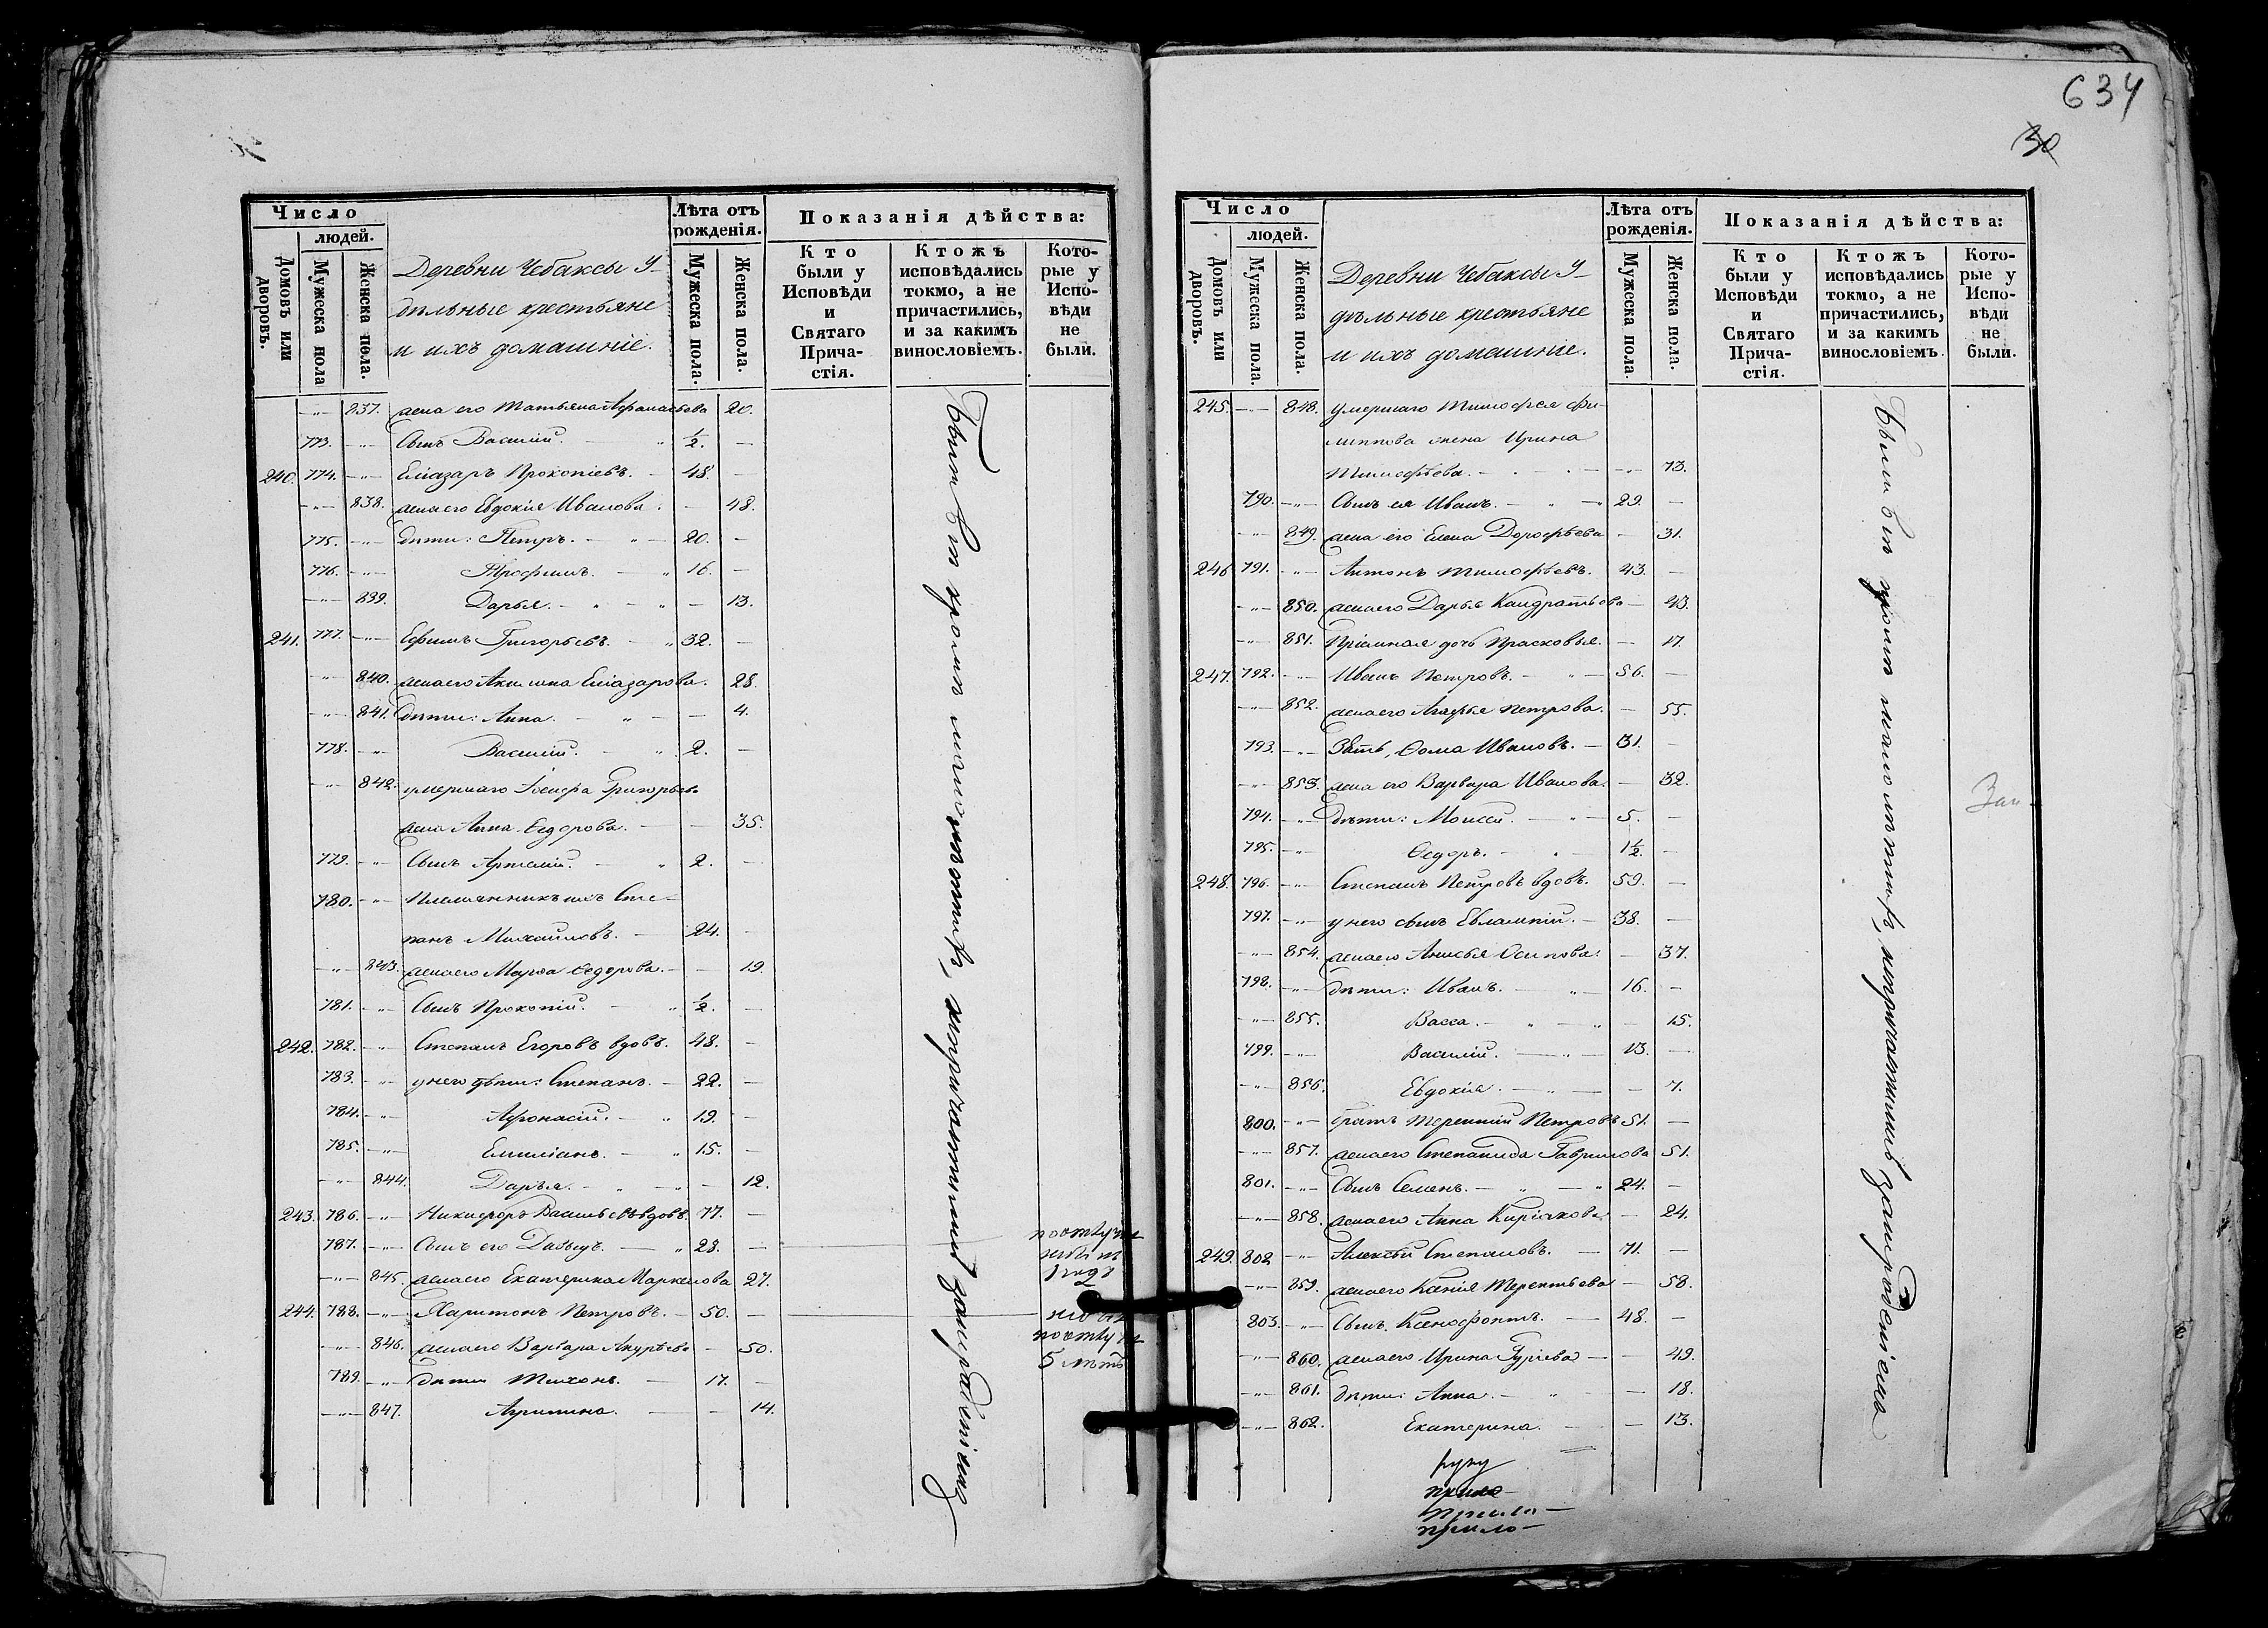 Число
людей.
Домовъ или дворовъ.
Мужеска пола
Женска пола.
Деревни Чебаксы У-
дѣльные крестьяне
и ихъ домашніе.
Лѣта отъ рожденія.
Мужеска пола.
Женска пола.
Показанія дѣйства:
Кто были у Исповѣди и Святаго Прича-стія.
Ктожъ исповѣдались токмо, а не причастились, и за какимъ винословіемъ.
Кото-рые у Испо-вѣди не были.
-"- 837. жена его Татьяна Афанасьева 20.
773. -"- Сынъ Василій. - " ½. -
240. 774. -"- Еліазаръ Прокопіевъ. - 48. -
-"- 838. жена его Евдокія Иванова. - 48.
775. -"- дѣти: Петръ. - " - 20. -
776. -"- Трофимъ. - " 16. -
-"- 839. Дарья. - " - " - 13.
241. 777. -"- Ефимъ Григорьевъ. - " 32. -
-"- 840. жена его Акилина Еліазарова. 28.
-"- 841. дѣти: Анна. - " - - 4.
778. -"- Василій. - " 2. -
-"- 842. умершаго Іосифа Григорьева
жена Анна Ѳедорова. - - 35.
779. -"- Сынъ Артемій. - " 2. -
780. -"- Племянникъ ихъ Сте-
панъ Михайловъ. - 24. -
-"- 843. жена его Марѳа Ѳедорова. - - 19.
781. -"- Сынъ Прокопій. - " ½. -
242. 782. -"- Степанъ Егоровъ вдовъ. 48. -
783. -"- у него дѣти: Степанъ. - 22. -
784. -"- Афонасій. - " 19. -
785. -"- Емиліанъ. - " 15. -
-"- 844. Дарья. - " - " - 12.
243. 786. -"- Никифоръ Васильевъ вдовъ. 77. -
787. -"- Сынъ его Давыдъ. - " 28. -
-"- 845. жена его Екатерина Маркелова 27.
244. 788. -"- Харитонъ Петровъ. - 50. -
-"- 846. жена его Варвара - 50.
789. -"- дѣти Тихонъ. - 17. -
-"- 847. Агрипина. - - 14.
Были вси кромѣ малолѣтнихъ, непричастились за
по отлуч
2
по отлуч
5 лѣтъ
634
30
Число
людей.
Домовъ или дворовъ.
Мужеска пола.
Женска пола.
Деревни Чебаксы У-
дѣльные крестьяне
и ихъ домашніе.
Лѣта отъ рожденія.
Мужеска пола.
Женска пола.
Показанія дѣйства:
Кто были у Исповѣди и Святаго Прича-стія.
Ктожъ исповѣдались токмо, а не причастились, и за какимъ винословіемъ.
Кото-рые у Испо-вѣди не были.
245. -"- 848. умершаго Тимофея Фи-
липпова жена Ирина
Тимофѣева. - . - . - -"- 73.
790. -"- Сынъ ея Иванъ. - " - 29. -
-"- 849. жена его Елена Дорофѣева - 31.
246. 791. -"- Антонъ Тимофѣевъ. 43. -
-"- 850. жена его Дарья Кандратьева - 43.
-"- 851. Пріемная дочь Прасковья. - 17.
247. 792. -"- Иванъ Петровъ. - " - 56. -
-"- 852. жена его Агафья Петрова. - 55.
793. -"- Зять, Ѳома Ивановъ. - 31. -
-"- 853. жена его Варвара Иванова. - 32.
794. -"- дѣти: Моисей. - " - 5. -
795. -"- Ѳедоръ. - . - 1½. -
248. 796. -"- Степанъ Петровъ вдовъ. 59. -
797. -"- у него сынъ Евлампій. - 38. -
-"- 854. жена его Анисья Осипова. - 37.
798. -"- дѣти: Иванъ. - " - 16. -
-"- 855. Васса. - " - " - 15.
799. -"- Василій. - " - 13. -
-"- 856. Евдокія. - " - - 7.
800. -"- братъ Терентій Петровъ 51. -
-"- 857. жена его Степанида Гаврилова 51.
801. -"- Сынъ Семенъ. - " - " 24. -
-"- 858. жена его Анна Киріякова - 24.
249. 802 -"- Алексѣй Степановъ. - 71. -
-"- 859. жена его Ксенія Терентьева - 58.
803. -"- Сынъ Ксенофонтъ. - 48. -
-"- 860. жена его Ирина Гуріева - - 49.
-"- 861. дѣти: Анна. - " - - 18.
-"- 862. Екатерина. - - 13.
Были вси кромѣ малолѣтнихъ, непричастились за
руку
прило-
прило-
прило-